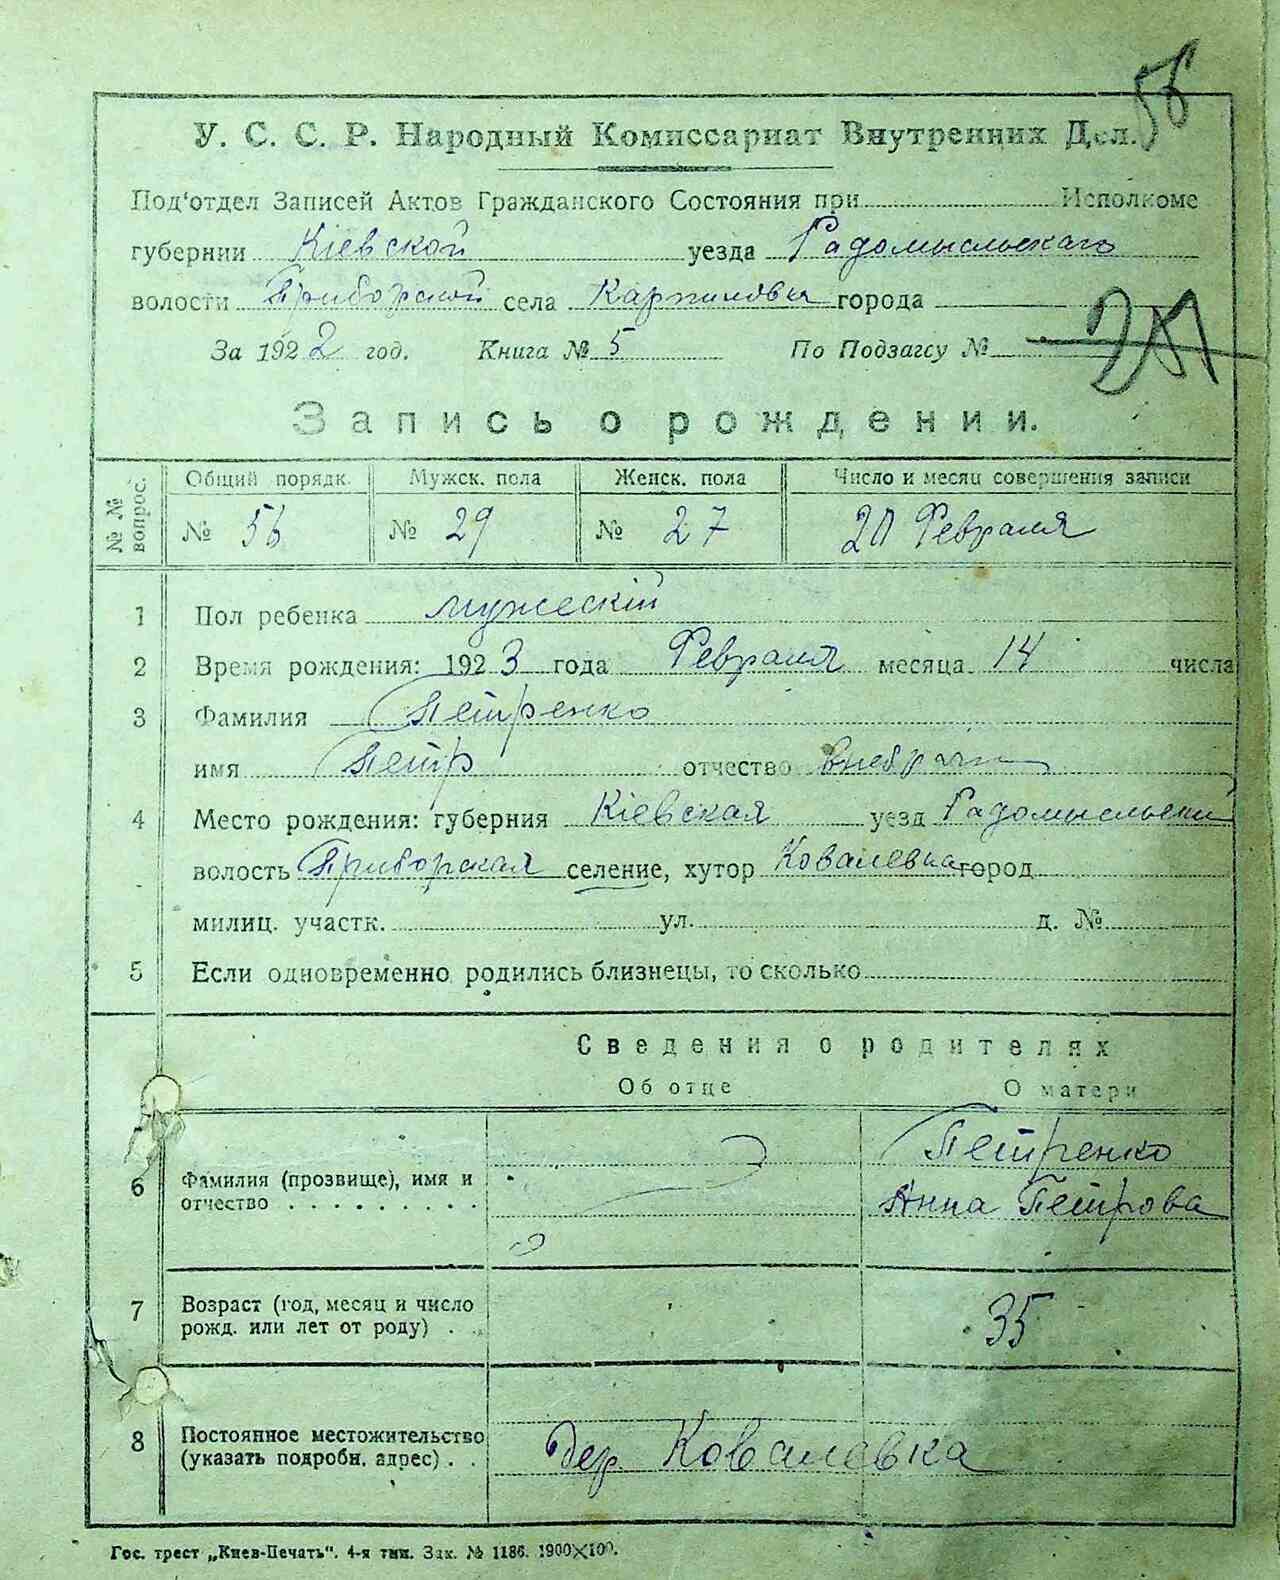 56
У. С. С. Р. Народный Комиссариат Внутренних Дел.
Под'отдел Записей Актов Гражданского Состояния при Исполкоме
губернии Кіевской уезда Радомысльскаго
волости Приборской села Карпиловки города
За 1922 год. Книга № 5 По Подзагсу №
251
Запись о рождении.
№ № вопрос. Общий порядк. Мужск. пола Женск. пола Число и месяц совершения записи
№ 56 № 29 № 27 20 Февраля
1 Пол ребенка мужескій
2 Время рождения: 1923 года Февраля месяца 14 числа
3 Фамилия Петренко
имя Петр отчество внебрачн
4 Место рождения: губерния Кіевская уезд Радомысльский
волость Приборская селение, хутор Ковалевка город
милиц. участк. ул. д. №
5 Если одновременно родились близнецы, то сколько
Сведения о родителях
Об отце О матери
Петренко
6 Фамилия (прозвище), имя и отчество Анна Петрова
7 Возраст (год, месяц и число рожд. или лет от роду) 35
8 Постоянное местожительство (указать подробн. адрес) дер. Ковалевка
Гос. трест „Киев-Печать". 4-я тип. Зак. № 1186. 1900×100.